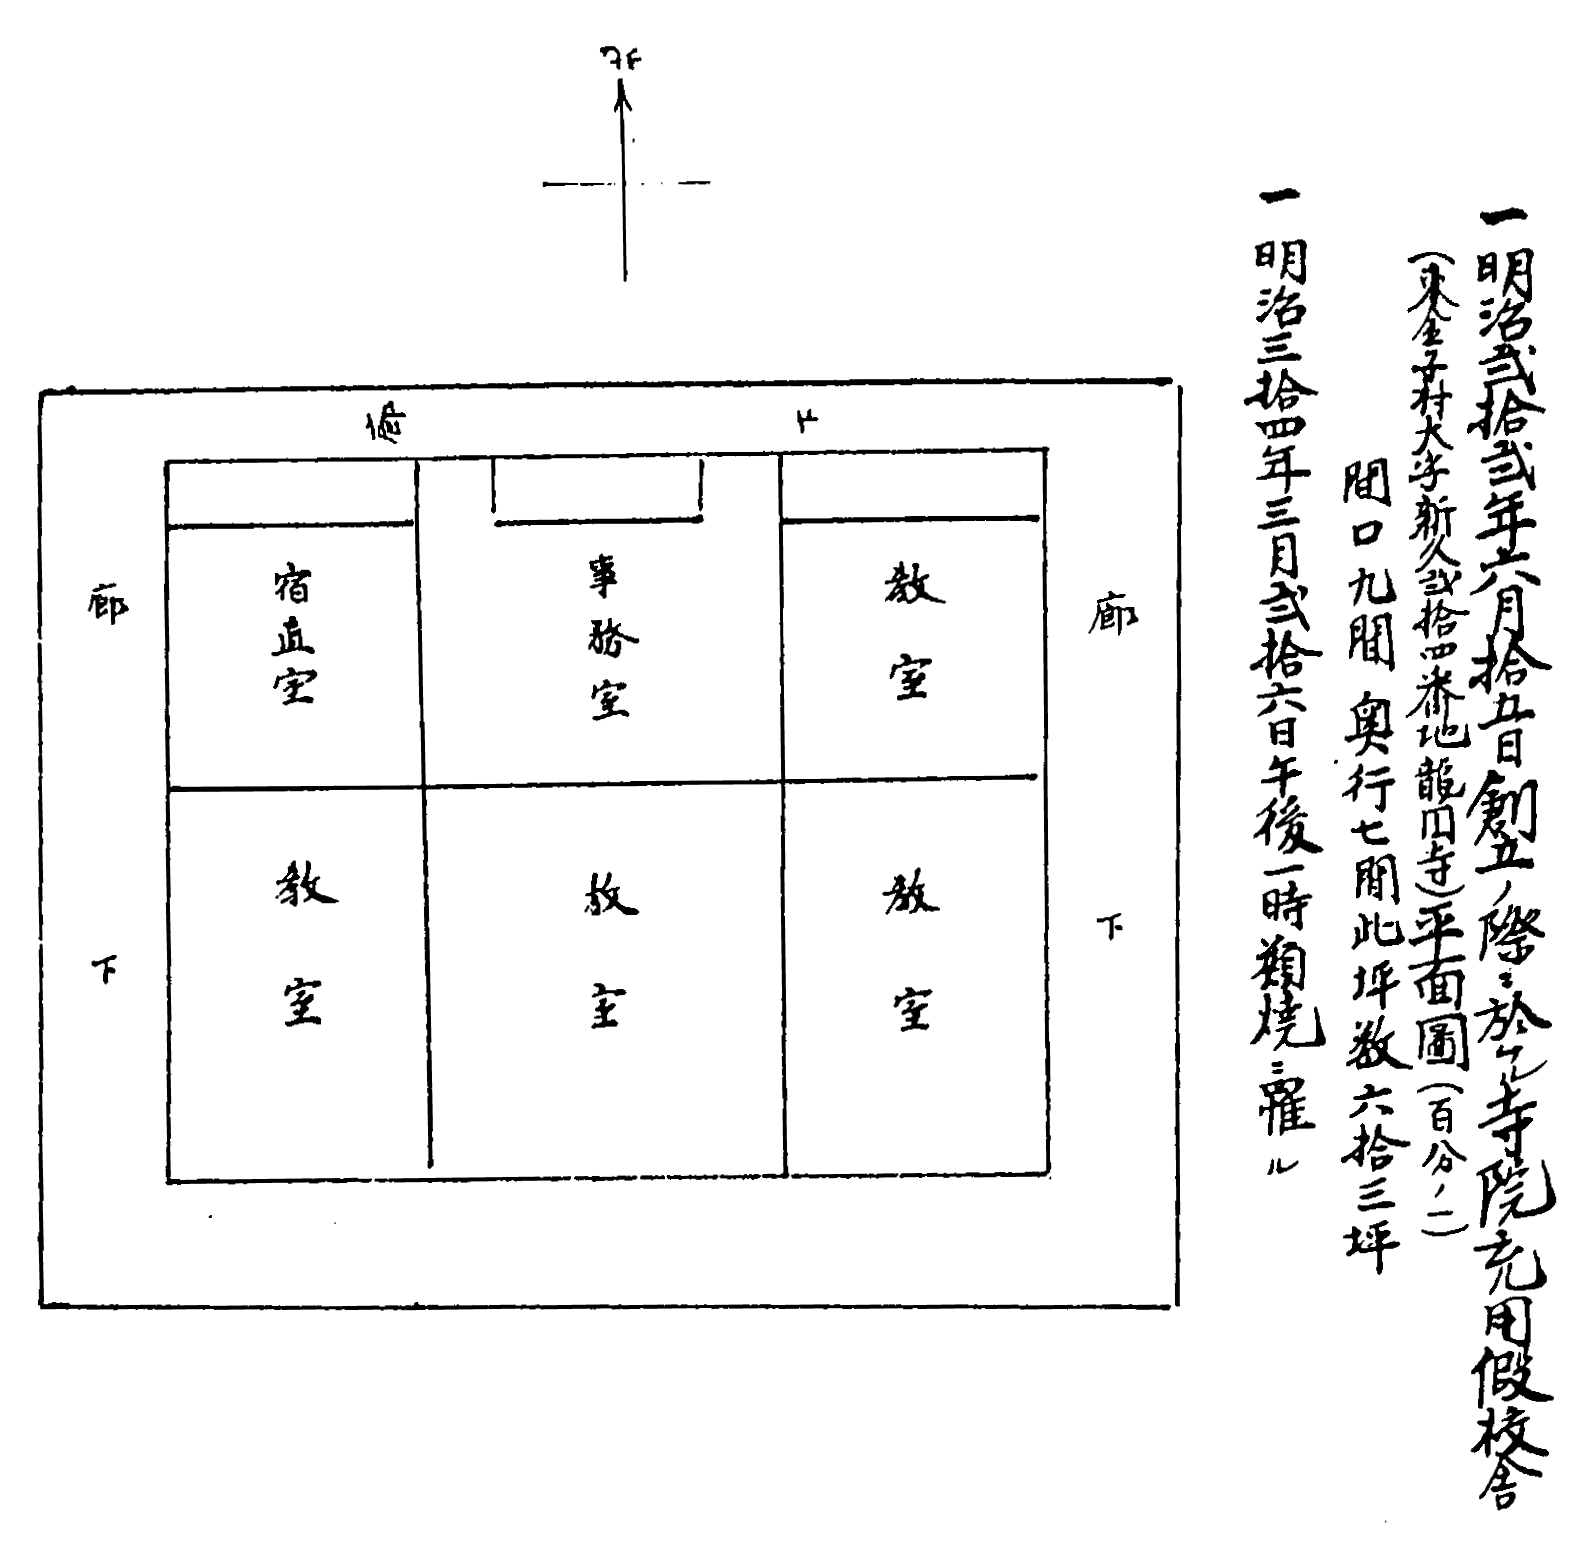 一 明治弐拾弐年六月拾五日創立ノ際ニ於ケル寺院充用假校舎
(東金子村大字新久弐拾四番地龍円寺)平面圖(百分ノ一)
間口九間 奥行七間此坪数六拾三坪
一 明治三拾四年三月弐拾六日午後一時類燒ニ罹ル
北
廊下
教室
事務室
宿直室
廊下
教室
教室
教室